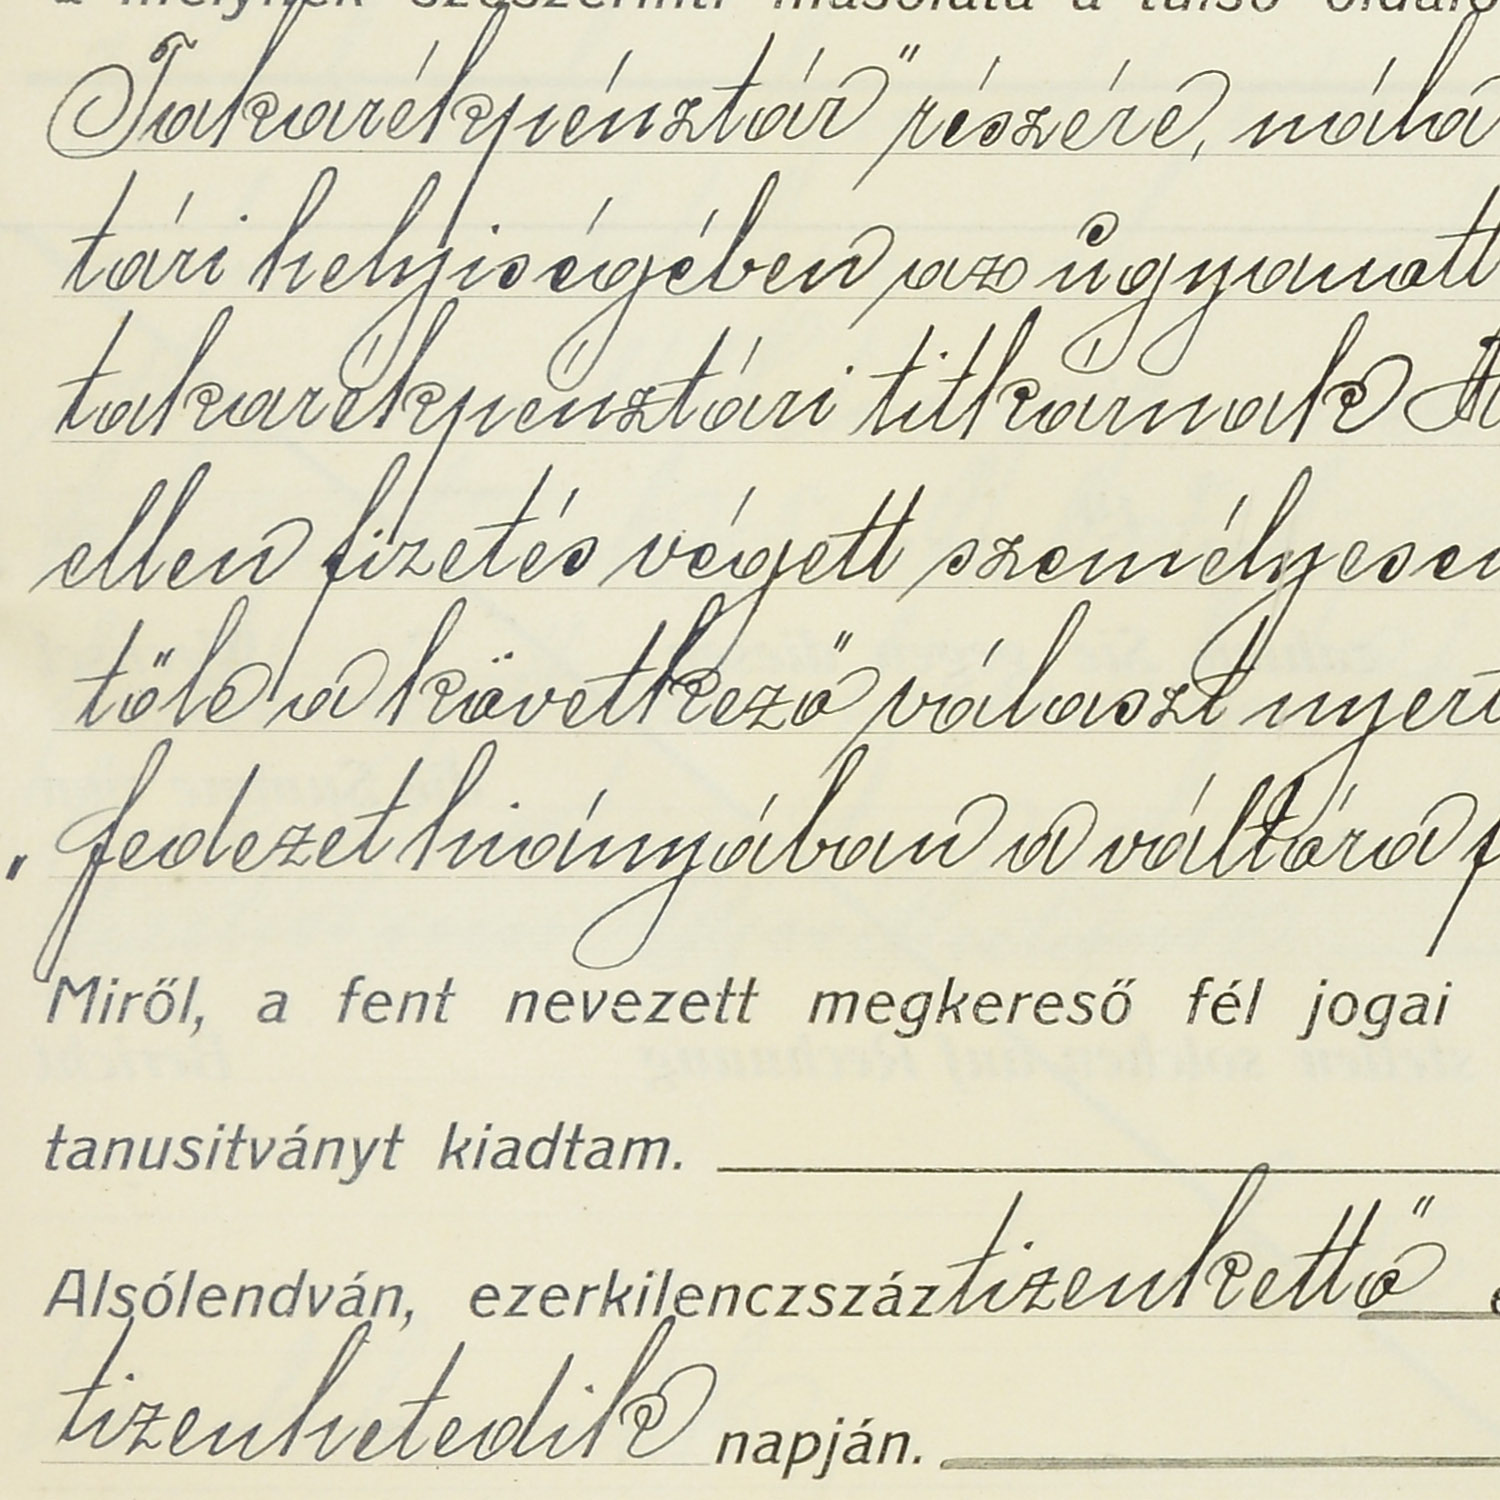 a melynek szószerinti másolata a túlsó oldalo
Takarékpénztár" részére, nála
tári helyiségében az ugyanott
takarékpénztári titkárnak
ellen fizetés végett személyesen
tőle a következő választ nyert
„fedezet hiányában a váltóra f
Miről, a fent nevezett megkereső fél jogai
tanusitványt kiadtam.
Alsólendván, ezerkilenczszáztizenkettő
tizenhetedik napján.